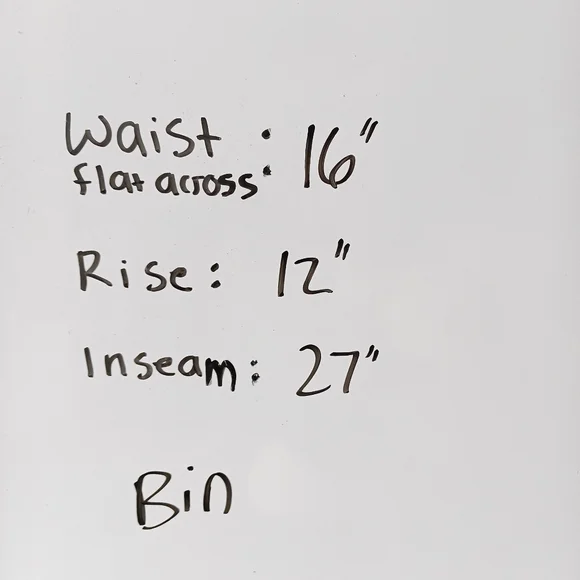 Waist : 16"
flat across
Rise : 12"
Inseam : 27"
Bin